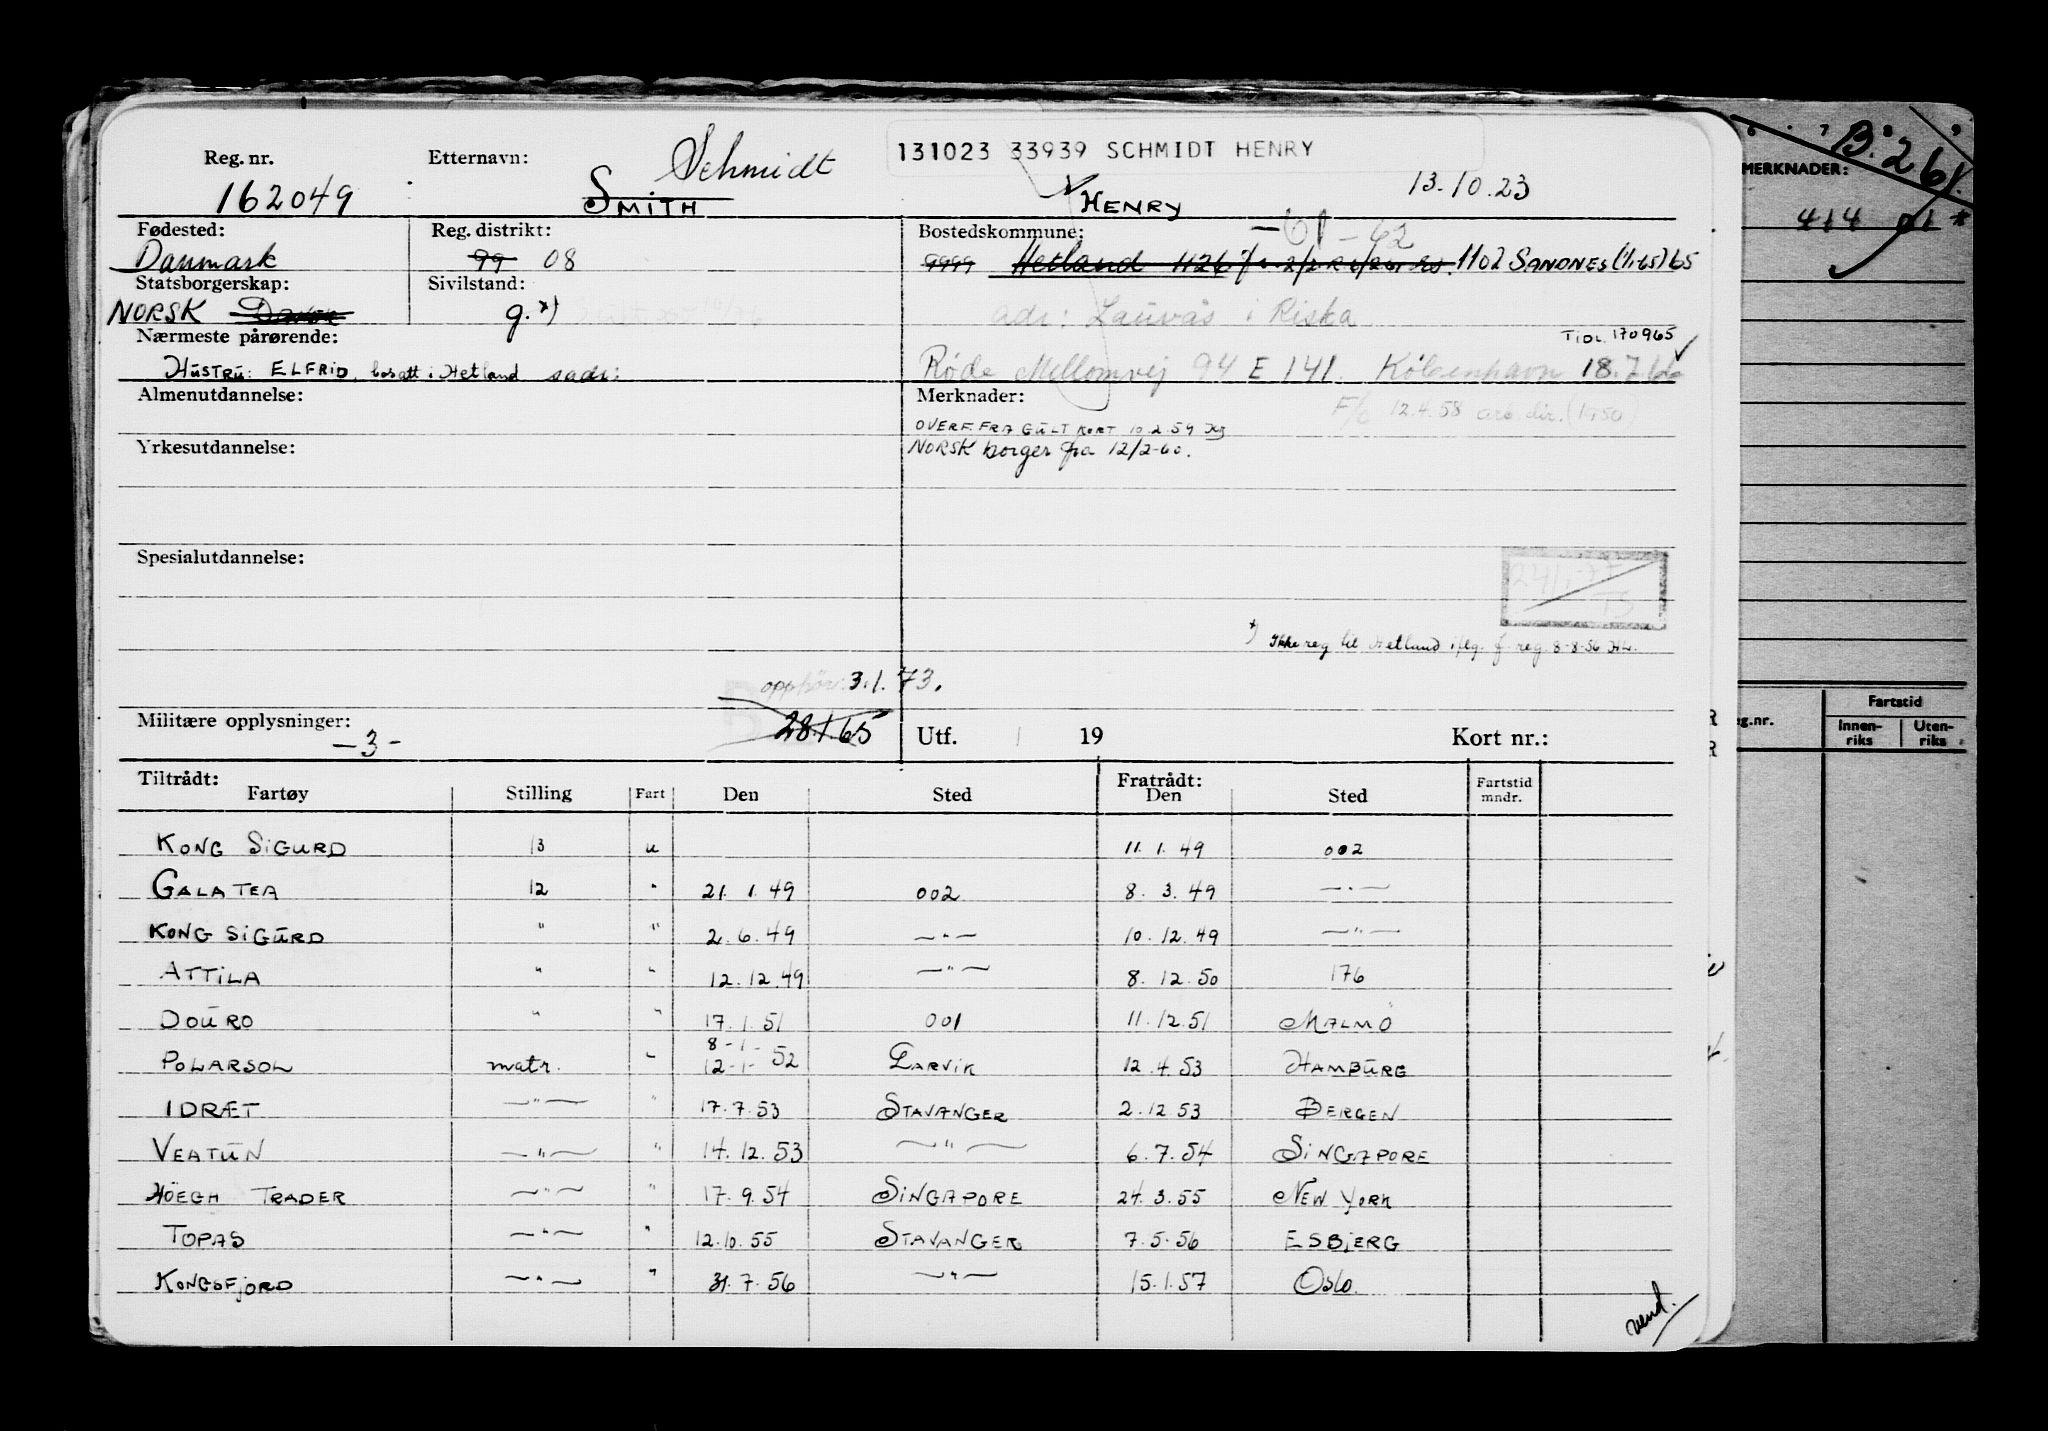 131023 33939 SCHMIDT HENRY
Reg. nr. Etternavn: Schmidt
162049 SMITH HENRY 13.10.23
Fødested: Reg. distrikt: Bostedskommune: -61-62
Danmark 99 08 9999 Hetland 1126 1102 SANDNES (1/1-65) 65
Statsborgerskap: Sivilstand:
NORSK Dansk g. *) adr: Lauvås i Riska
Nærmeste pårørende: TIDL. 170965
HUSTRU: ELFRID, bosatt i Hetland sadr: Røde Mellomvej 94 E 141. København 18.7.62
Almenutdannelse: Merknader: F/o 12.4.58 arb.dir. (1.150)
OVERF. FRA GULT KORT 10.2.59
Yrkesutdannelse: NORSK borger fra 12/2-60.
Spesialutdannelse:
*) Ikke reg til Hetland iflg. f. reg. 8-8-56 HL.
opphør: 3.1.73.
Militære opplysninger: 28.1.65 Utf. 19 Kort nr.:
-3-
Tiltrådt: Fratrådt: Fartstid
Fartøy Stilling Fart Den Sted Den Sted mndr.
KONG SIGURD 13 u 11.1.49 002
GALATEA 12 " 21.1.49 002 8.3.49 -"-
KONG SIGURD " " 2.6.49 -"- 10.12.49 -"-
ATTILA " " 12.12.49 -"- 8.12.50 176
DOURO " " 17.1.51 001 11.12.51 MALMÖ
8-1-
POLARSOL matr. " 12-1-52 Larvik 12.4.53 HAMBURG
IDRÆT -"- " 17.7.53 STAVANGER 2.12 53 BERGEN
VEATUN -"- " 14.12.53 -"- 6.7.54 SINGAPORE
HÖEGH TRADER -"- " 17.9.54 SINGAPORE 24.3.55 NEW YORK
TOPAS -"- " 12.10.55 STAVANGER 7.5.56 ESBJERG
KONGSFJORD -"- " 31.7.56 -"- 15.1.57 Oslo.
vend.
B.261.
MERKNADER:
414 01 *
Fartstid
g.nr. Innen- Uten-
riks riks